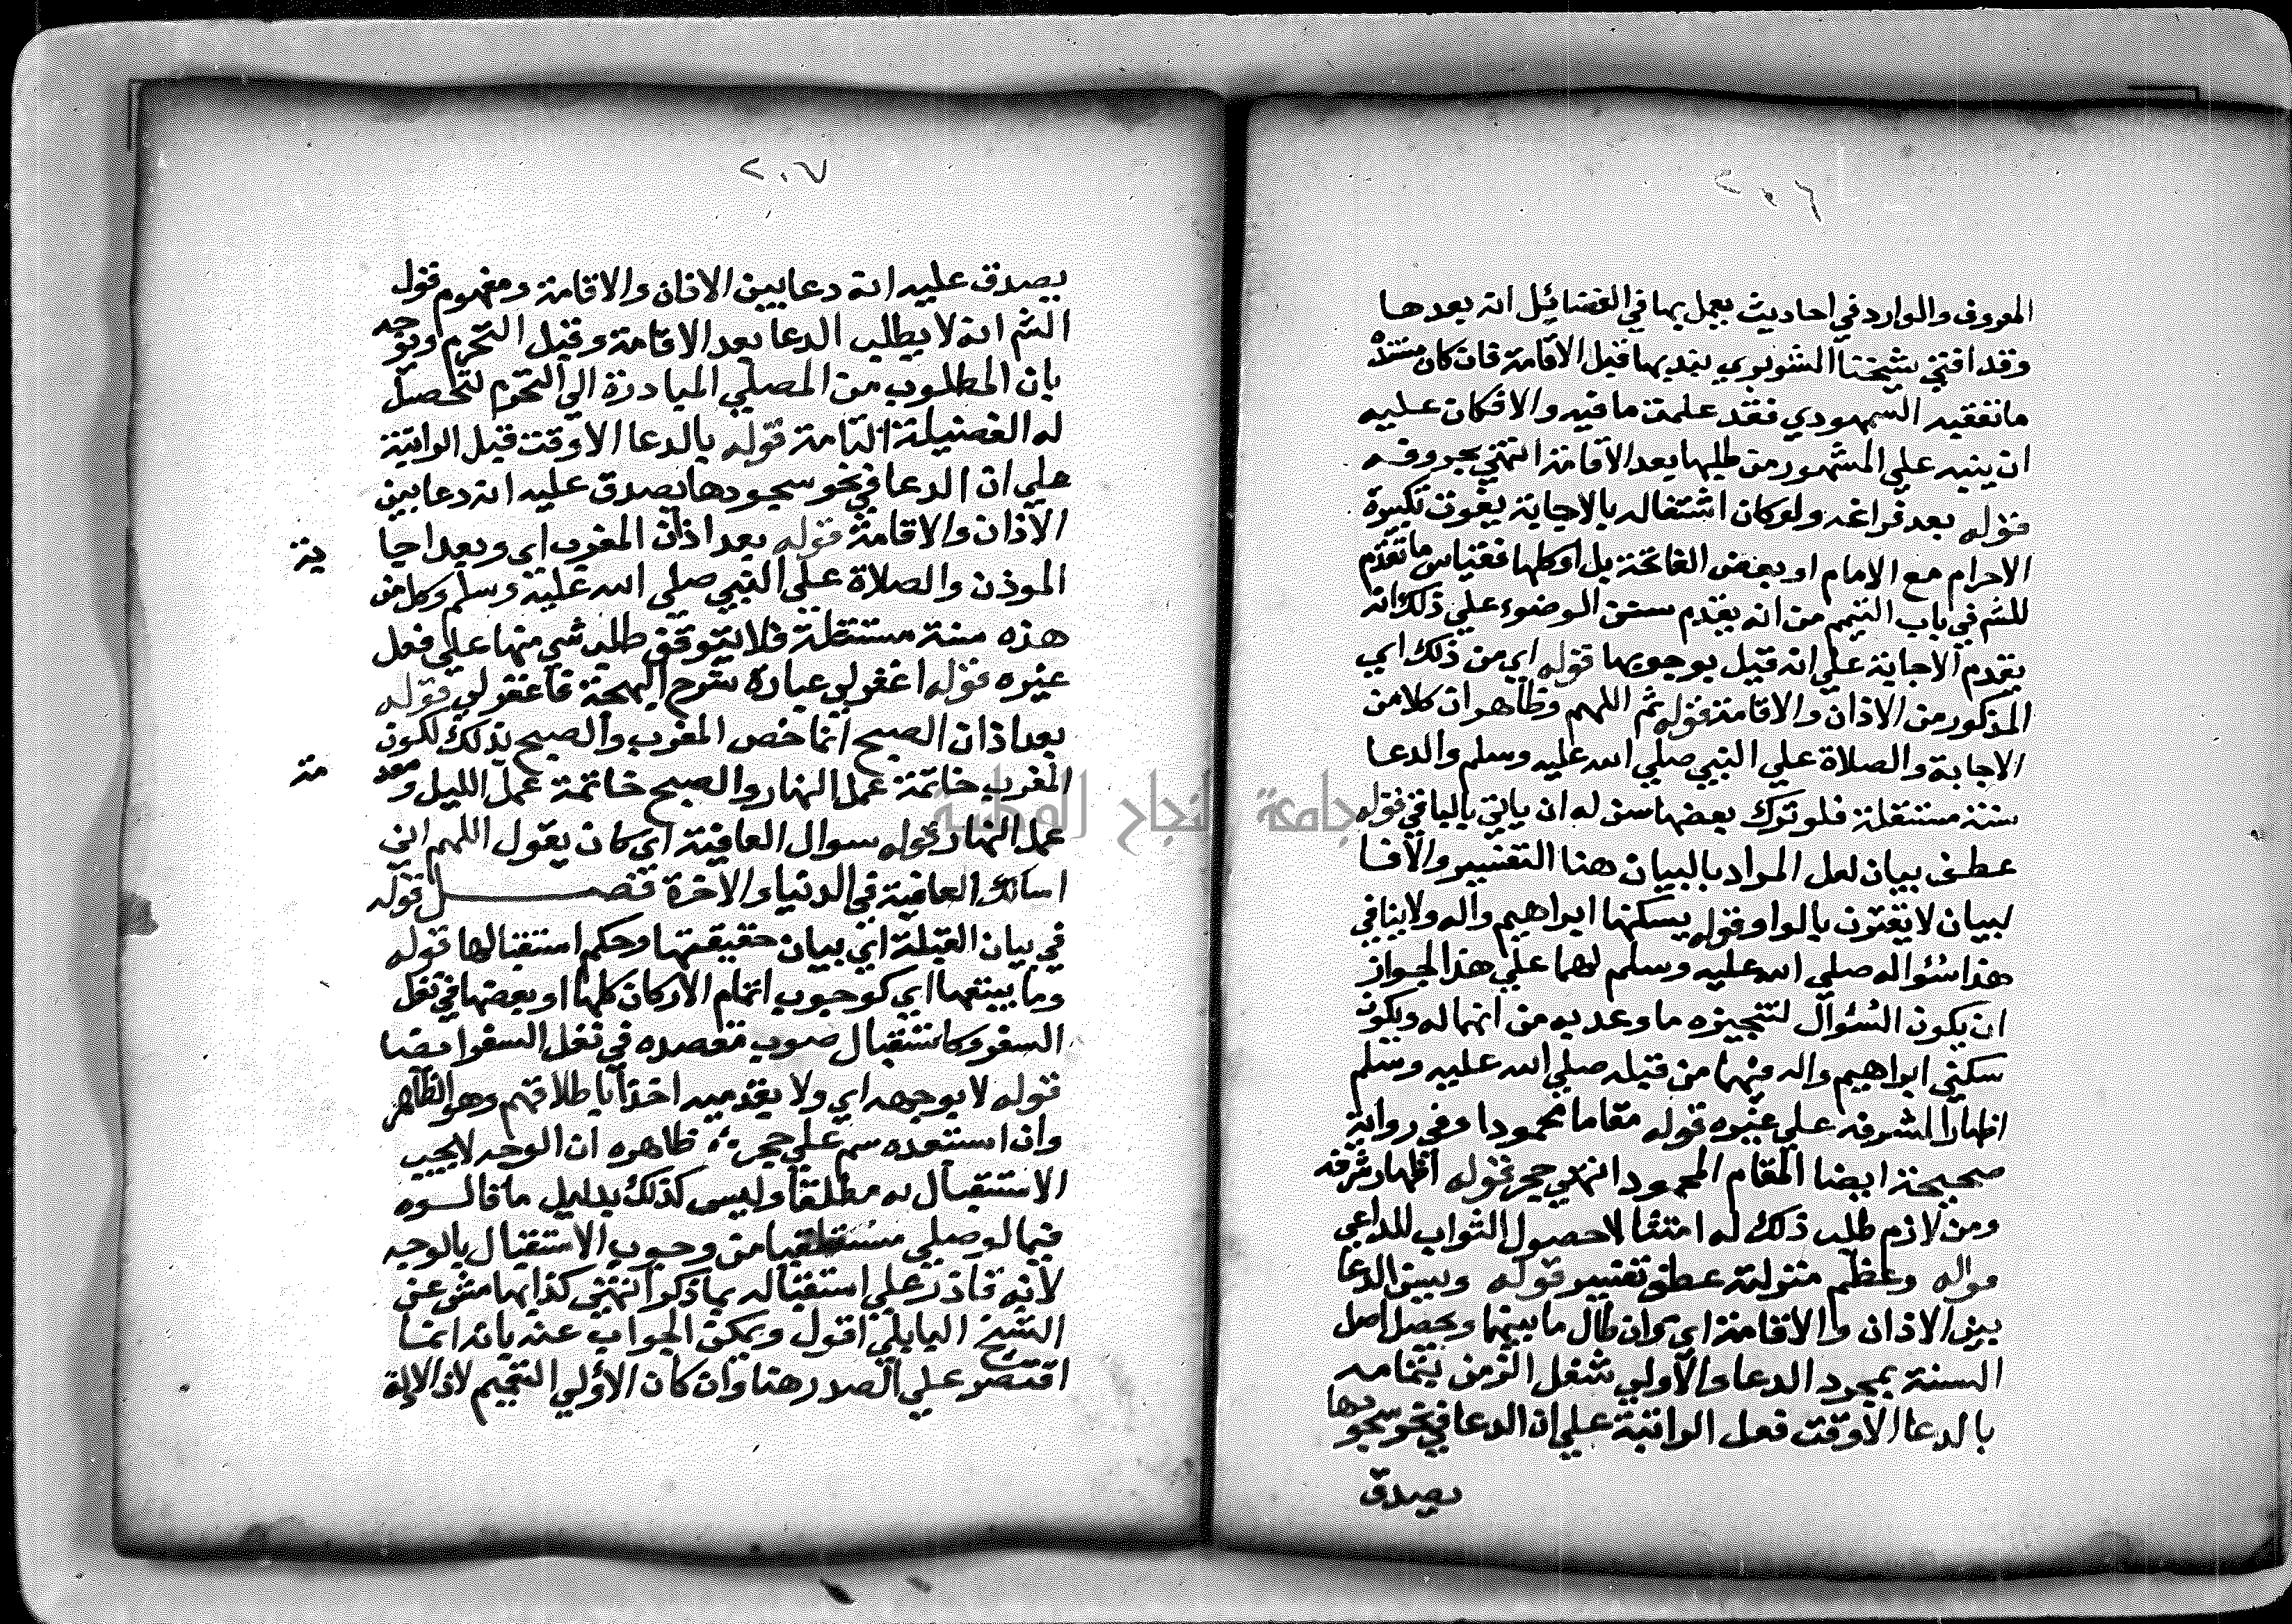 ٢٠٦
المعروف والوارد في احاديث يعمل بها في الفضائل انه بعدها
وقد افتى شيخنا الشوبري بنديها قبل الاقامة فان كان مستنده
ما نفقيه السمهودي فقد علمت ما فيه والا فكان عليه
ان ينبه علي المشهور من طلبها بعد الاقامة انتهي بحروفه
قوله بعد فراغه ولو كان اشتغاله بالاجابة يفوت تكبيرة
الاحرام مع الامام او بعض الفاتحة بل او كلها فقياس ما تقدم
للشم في باب التيمم من انه يقدم سنن الوضوء علي ذلك انه
يقدم الاجابة علي انه قيل بوجوبها قوله اي من ذلك اي
المذكور من الاذان والاقامة قوله ثم اللهم وظاهر ان كلا من
الاجابة والصلاة علي النبي صلي الله عليه وسلم والدعا
سنة مستقلة فلو ترك بعضها سن له ان ياتي بالباقي قوله
عطف بيان لعل المراد بالبيان هنا التفسير والا فا
لبيان لا يقترن بالواو قوله يسكنها ابراهيم واله ولا ينافي
هذا سئواله صلي الله عليه وسلم لهما علي هذا الجواز
ان يكون السئوال لتنجيزه ما وعد به من انهما له ويكون
سكني ابراهيم واله فيهما من قبله صلي الله عليه وسلم
اظهارا لشرفه علي غيره قوله مقاما محمودا وفي رواية
صحيحة ايضا المقام المحمود انتهي حجر قوله اظهار شرفه
ومن لازم طلب ذلك له امتثالا حصول الثواب للداعي
قوله وعظم منزلته عطف تفسير قوله ويسن الدعا
بين الاذان والاقامة اي وان طال ما بينهما ويحصل اصل
السنة بمجرد الدعا والاولي شغل الزمن بتمامه
بالدعا الا وقت فعل الراتبة علي ان الدعا في نحو سجودها
يصدق
٢٠٧
يصدق عليه انه دعا بين الاذان والاقامة ومفهوم قول
الشم انه لا يطلب الدعا بعد الاقامة وقبل التحرم ويوجه
بان المطلوب من المصلي المبادرة الي التحرم لتحصل
له الفضيلة التامة قوله بالدعا الا وقت قبل الراتبة
علي ان الدعا في نحو سجودها يصدق عليه انه دعا بين
الاذان والاقامة قوله بعد اذان المغرب اي وبعد اجا
بة
الموذن والصلاة علي النبي صلي الله عليه وسلم وكل من
هذه سنة مستقلة فلا يتوقف طلب شي منها علي فعل
غيره قوله اغفر لي عبارة شرح البهجة فاغفر لي قوله
بعد اذان الصبح انما خص المغرب والصبح بذلك لكون
المغرب خاتمة عمل النهار والصبح خاتمة عمل الليل ومقد
مة
عمل النهار قوله سوال العافية اي كان يقول اللهم اني
اسالك العافية في الدنيا والاخرة فصل قوله
في بيان القبلة اي بيان حقيقتها وحكم استقبالها قوله
وما يتبعها اي كوجوب اتمام الاركان كلها او بعضها في نفل
السفر وكاستقبال صوب مقصده في نفل السفر ايضا
قوله لا بوجهه اي ولا بقدميه اخذا باطلاقهم وهو الظاهر
وان استبعده سم علي حجر ظاهره ان الوجه لا يجب
الاستقبال به مطلقا وليس كذلك بدليل ما قالوه
فيما لو صلي مستلقيا من وجوب الاستقبال بالوجه
لانه قادر علي استقباله بما ذكر انتهي كذا بهامش عن
الشيخ البابلي اقول ويمكن الجواب عنه بانه انما
اقتصر علي الصدر هنا وان كان الاولي التعميم لان الادلة
جامعة النجاح الوطنية